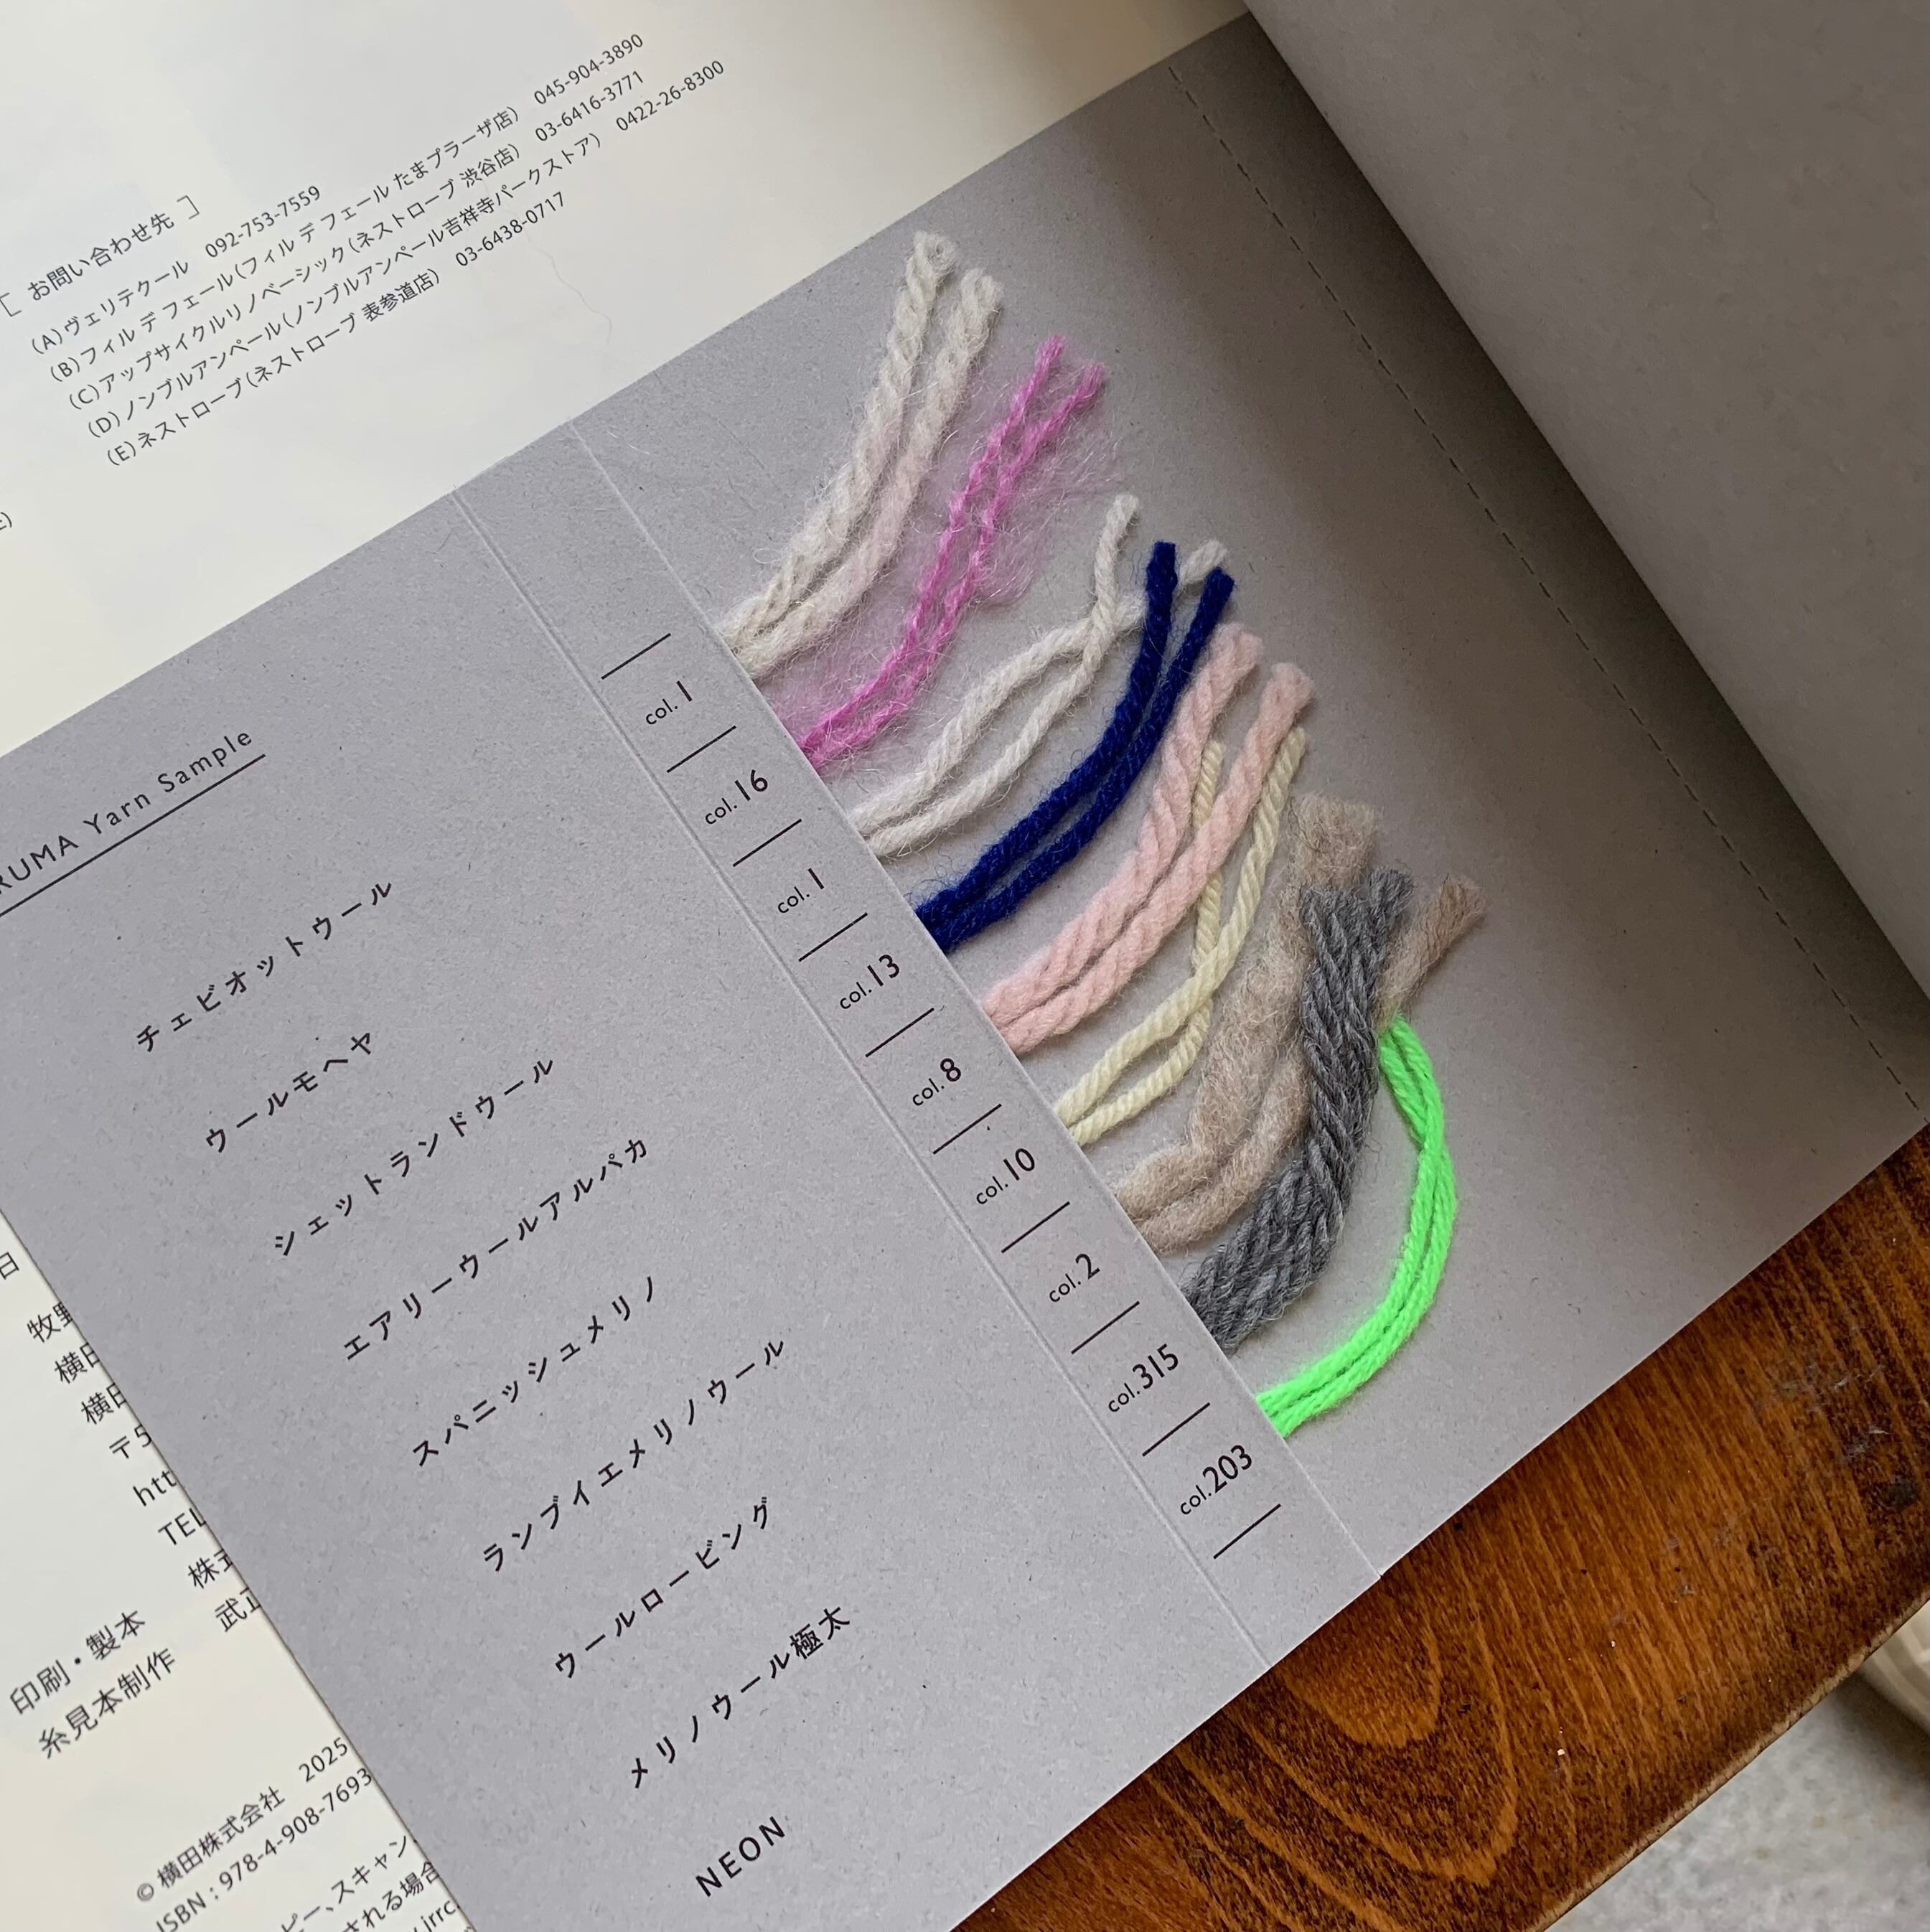 ［ お問い合わせ先 ］
(A)ヴェリテクール 092-753-7559
(B)フィル デ フェール(フィル デ フェール たまプラーザ店) 045-904-3890
(C)アップサイクルリノベーシック(ネストローブ 渋谷店) 03-6416-3771
(D)ノンブルアンペール(ノンブルアンペール吉祥寺パークストア) 0422-26-8300
(E)ネストローブ(ネストローブ 表参道店) 03-6438-0717
Yarn Sample
チェビオットウール col. 1
ウールモヘヤ col. 16
シェットランドウール col. 1
エアリーウールアルパカ col. 13
スパニッシュメリノ col. 8
ランブイエメリノウール col. 10
ウールロービング col. 2
メリノウール極太 col. 315
NEON col. 203
日
横田
〒5
TEL
印刷・製本
糸見本制作
© 横田株式会社 2025
ISBN : 978-4-908-7693
スキャン
される場合